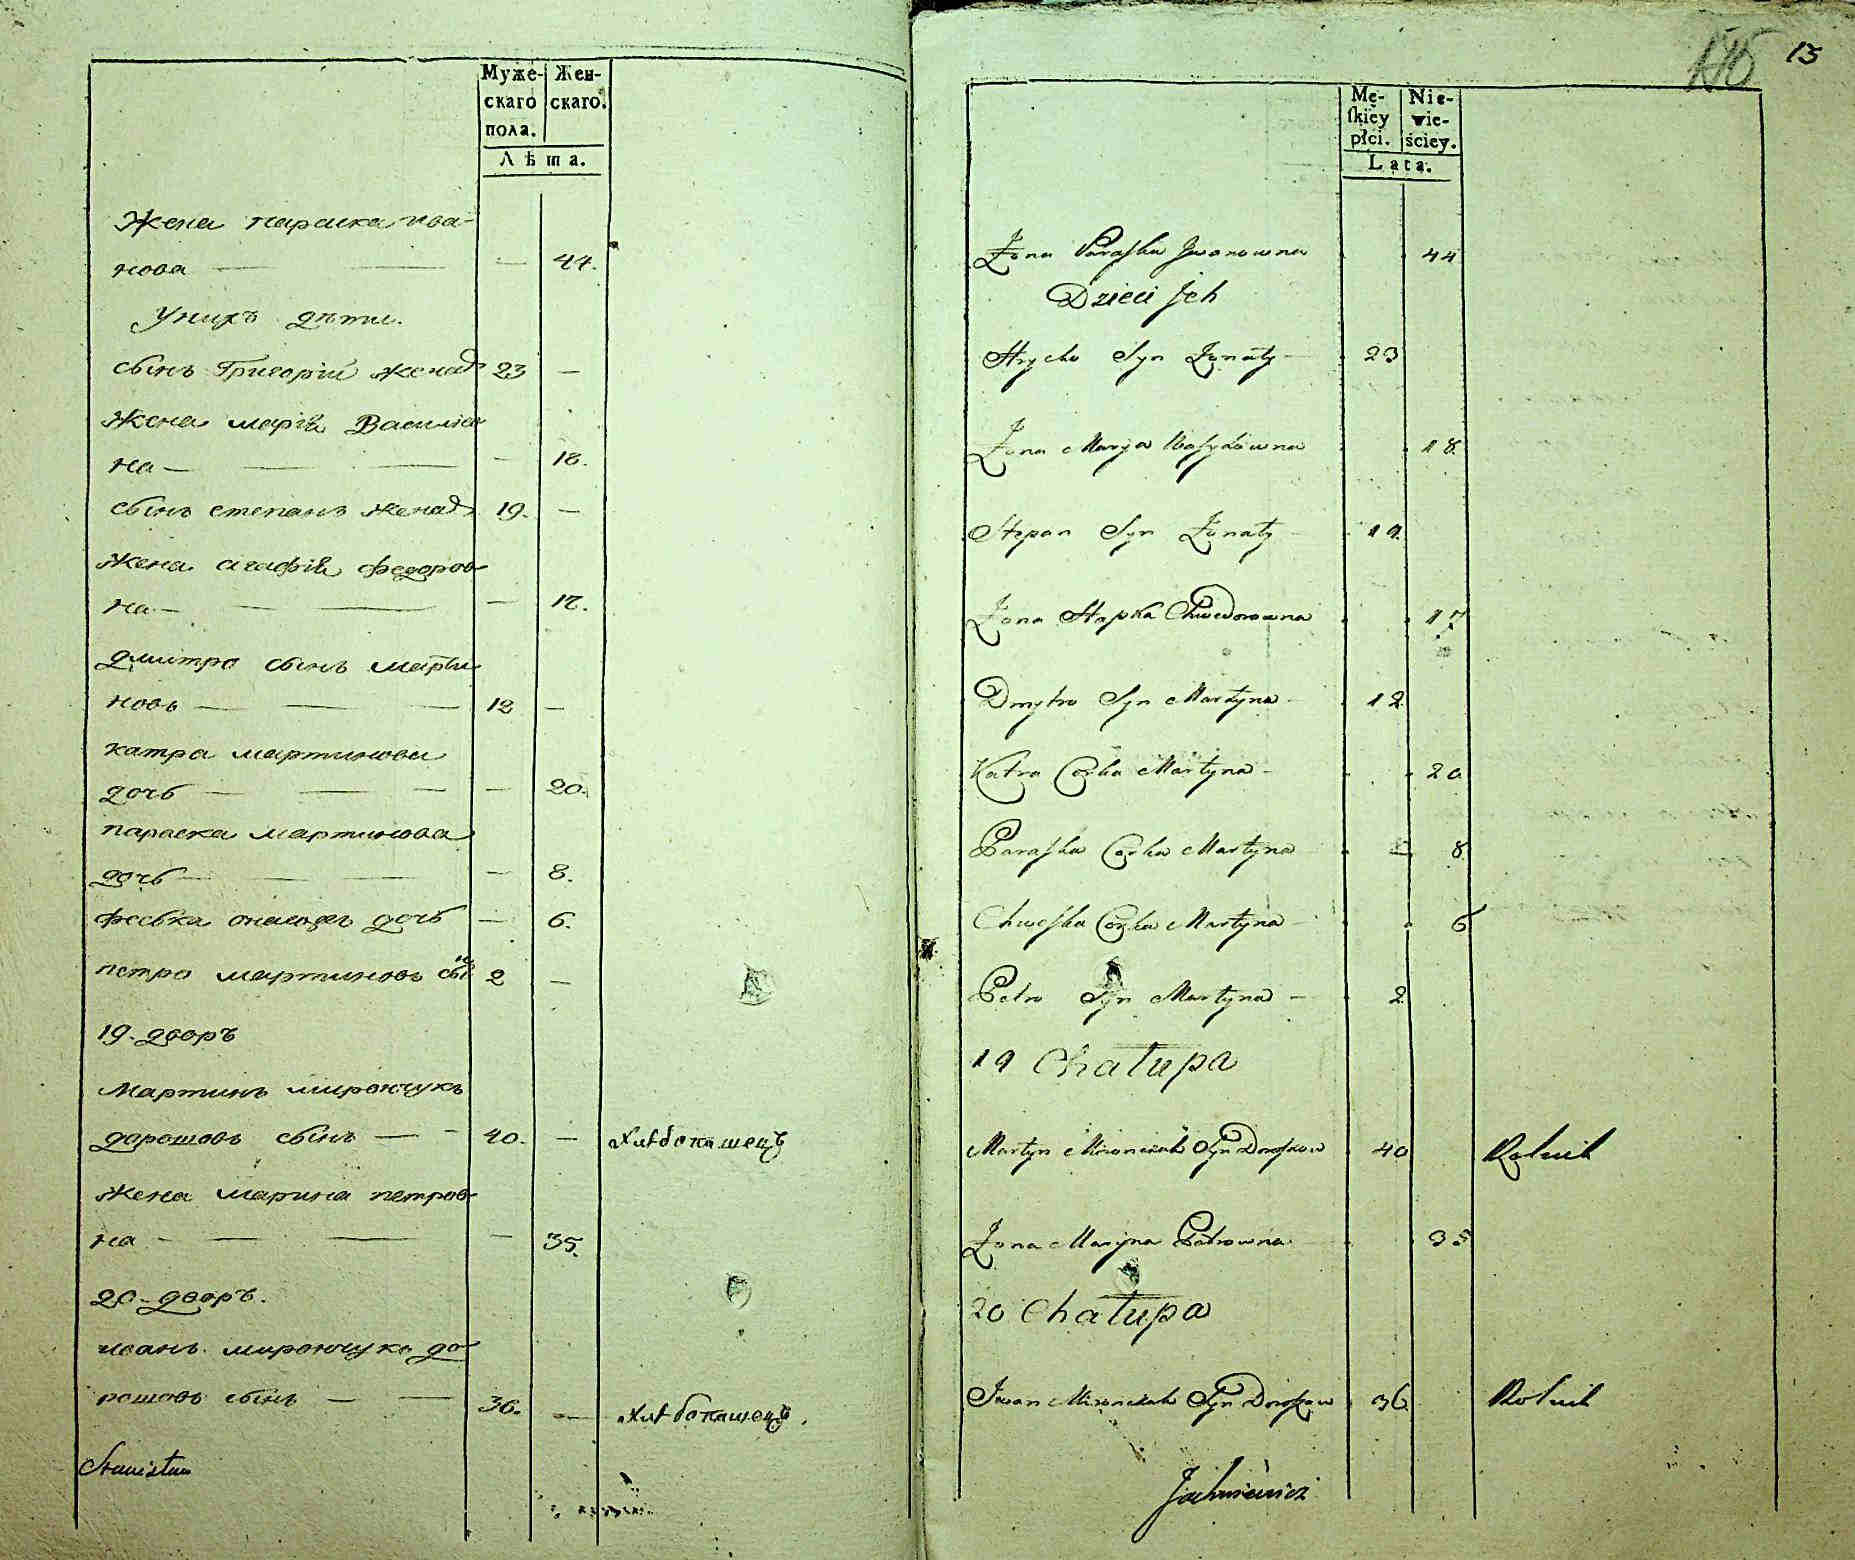 Муже-
скаго
пола.
Жен-
скаго.
Лѣта.
Жена параска ива-
нова — — — 44.
Унихъ дѣти.
сынъ Григорій женад 23 —
Жена марія Василів
на — — — — 18.
сынъ степанъ женад 19. —
Жена агафія федоров
на — — — — 17.
дмитро сынъ марти
новъ — — — 12 —
катра мартинова
дочь — — — — 20.
параска мартинова
дочь — — — 8.
феська онагожъ дочь — 6.
петро мартиновъ сын 2 —
19. дворъ
Мартинъ мирончукъ
дорошовъ сынъ — - 40. — хлѣбопашецъ
Жена марина петров
на — — — — 35.
20 - дворъ.
иванъ мирончукъ до
рошовъ сынъ — — 36. — хлѣбопашецъ.
Stanisław
13
Mę-
skiey
płci.
Nie-
wie-
ściey.
Lata.
Żona Paraska Jwanowna 44
Dzieci Jch
Hrycko Syn Żonaty — 23
Żona Marya Wasylowna 18.
Stepan Syn Żonaty — 19.
Żona Hapka Chwedorowna 17
Dmytro Syn Martyna — 12
Katra Corka Martyna — 20
Paraska Corka Martyna — 8
Chweska Corka Martyna — 6
Petro Syn Martyna — 2
19 Chałupa
Martyn Mironczuk Syn Doroszow 40 Rolnik
Żona Maryna Petrowna 35
20 Chałupa
Jwan Mironczuk Syn Doroszow 36 Rolnik
Jachniewicz